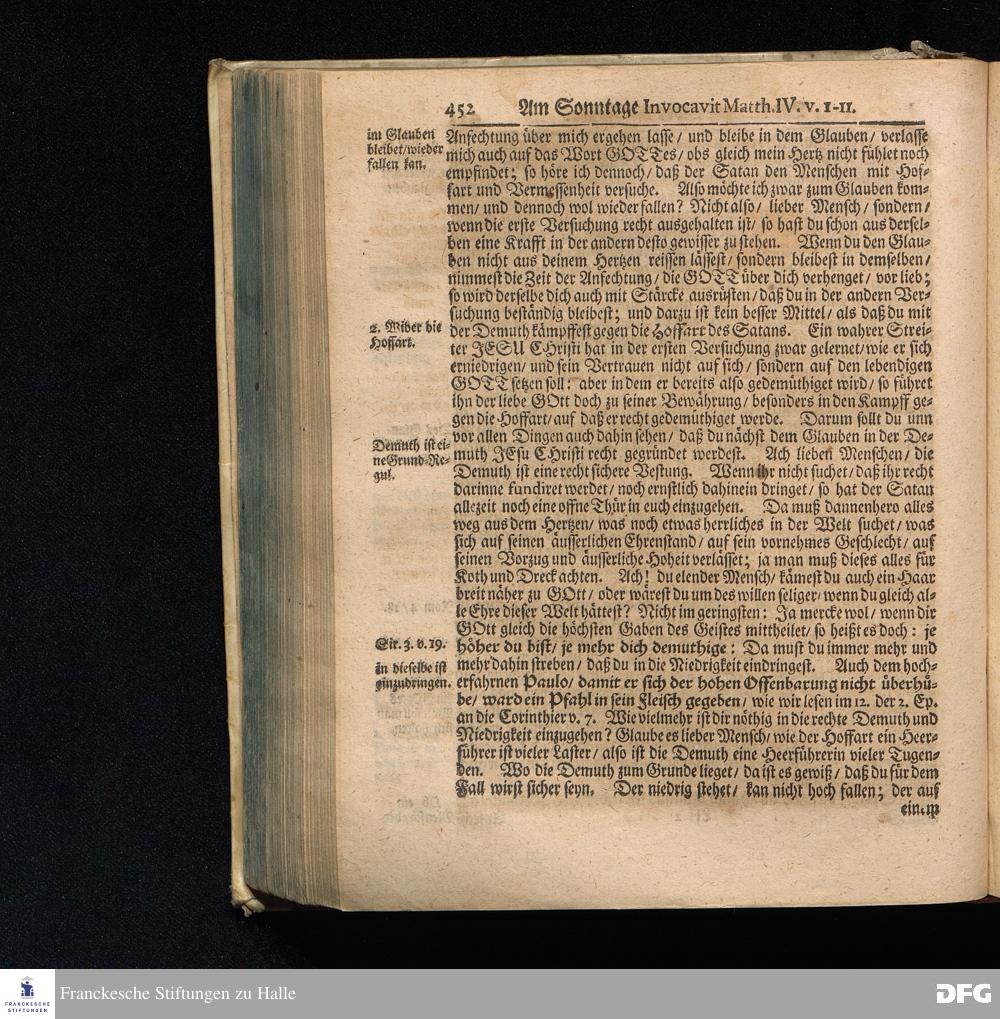 452 Am Sonntage Invocavit Matth. IV. v. 1-11.
im Glauben
bleibet/wieder
fallen kan.
Anfechtung über mich ergehen lasse/ und bleibe in dem Glauben/ verlasse
mich auch auf das Wort GOTTes/ obs gleich mein Hertz nicht fühlet noch
empfindet; so höre ich dennoch/ daß der Satan den Menschen mit Hof-
fart und Vermessenheit versuche. Also möchte ich zwar zum Glauben kom-
men/ und dennoch wol wieder fallen? Nicht also/ lieber Mensch/ sondern/
wenn die erste Versuchung recht ausgehalten ist/ so hast du schon aus dersel-
ben eine Krafft in der andern desto gewisser zu stehen. Wenn du den Glau-
ben nicht aus deinem Hertzen reissen lässest/ sondern bleibest in demselben/
nimmest die Zeit der Anfechtung/ die GOTT über dich verhenget/ vor lieb;
so wird derselbe dich auch mit Stärcke ausrüsten/ daß du in der andern Ver-
suchung beständig bleibest; und darzu ist kein besser Mittel/ als daß du mit
2. Wider die
Hoffart.
der Demuth kämpffest gegen die Hoffart des Satans. Ein wahrer Strei-
ter JESU CHristi hat in der ersten Versuchung zwar gelernet/ wie er sich
erniedrigen/ und sein Vertrauen nicht auf sich/ sondern auf den lebendigen
GOTT setzen soll: aber in dem er bereits also gedemüthiget wird/ so führet
ihn der liebe GOtt doch zu seiner Bewährung/ besonders in den Kampff ge-
gen die Hoffart/ auf daß er recht gedemüthiget werde. Darum sollt du unn
vor allen Dingen auch dahin sehen/ daß du nächst dem Glauben in der De-
Demuth ist ei-
ne Grund-Re-
gul.
muth JEsu CHristi recht gegründet werdest. Ach lieben Menschen/ die
Demuth ist eine recht sichere Vestung. Wenn ihr nicht suchet/ daß ihr recht
darinne fundiret werdet/ noch ernstlich dahinein dringet/ so hat der Satan
allezeit noch eine offne Thür in euch einzugehen. Da muß dannenhero alles
weg aus dem Hertzen/ was noch etwas herrliches in der Welt suchet/ was
sich auf seinen äusserlichen Ehrenstand/ auf sein vornehmes Geschlecht/ auf
seinen Vorzug und äusserliche Hoheit verlässet; ja man muß dieses alles für
Koth und Dreck achten. Ach! du elender Mensch/ kämest du auch ein Haar
breit näher zu GOtt/ oder wärest du um des willen seliger/ wenn du gleich al-
le Ehre dieser Welt hättest? Nicht im geringsten: Ja mercke wol/ wenn dir
GOtt gleich die höchsten Gaben des Geistes mittheilet/ so heißt es doch: je
Sir. 3. v. 19.
höher du bist/ je mehr dich demuthige: Da must du immer mehr und
in dieselbe ist
einzudringen.
mehr dahin streben/ daß du in die Niedrigkeit eindringest. Auch dem hoch-
erfahrnen Paulo/ damit er sich der hohen Offenbarung nicht überhü-
be/ ward ein Pfahl in sein Fleisch gegeben/ wie wir lesen im 12. der 2. Ep.
an die Corinthier v. 7. Wie vielmehr ist dir nöthig in die rechte Demuth und
Niedrigkeit einzugehen? Glaube es lieber Mensch/ wie der Hoffart ein Heer-
führer ist vieler Laster/ also ist die Demuth eine Heerführerin vieler Tugen-
den. Wo die Demuth zum Grunde lieget/ da ist es gewiß/ daß du für dem
Fall wirst sicher seyn. Der niedrig stehet/ kan nicht hoch fallen; der auf
einem
FRANCKESCHE
STIFTUNGEN
Franckesche Stiftungen zu Halle
DFG